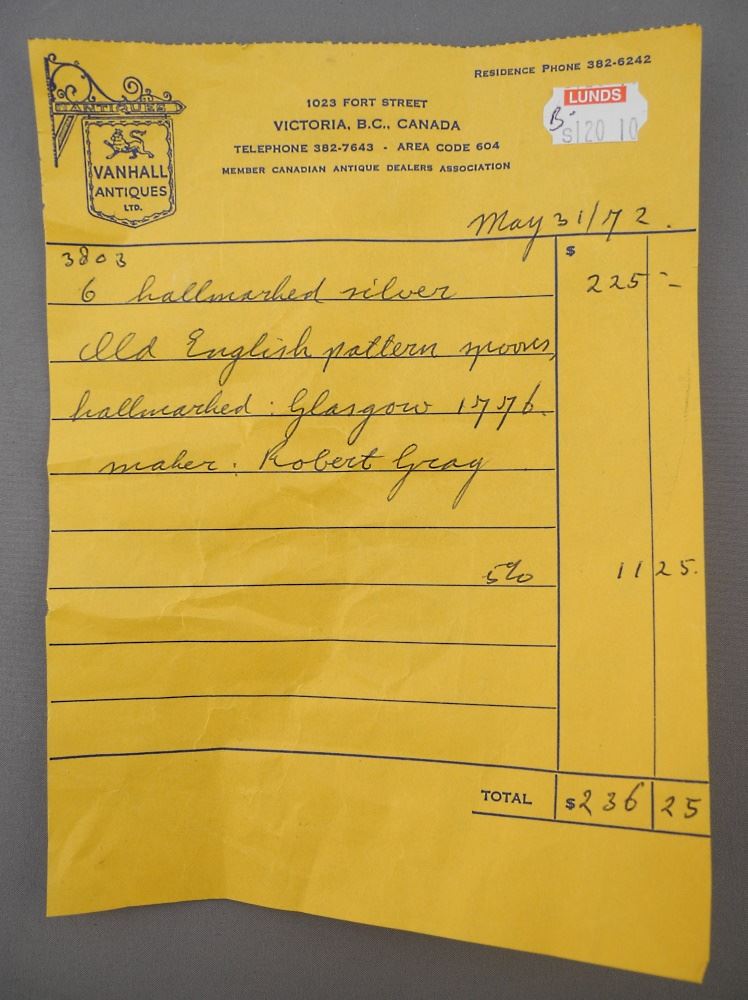 RESIDENCE PHONE 382-6242
ANTIQUES
VANHALL
ANTIQUES
LTD.
1023 FORT STREET
VICTORIA, B.C., CANADA
TELEPHONE 382-7643 - AREA CODE 604
MEMBER CANADIAN ANTIQUE DEALERS ASSOCIATION
LUNDS
B-
S120 10
May 31/72.
3803 $
6 hallmarked silver 225 -
Old English pattern spoons,
hallmarked: Glasgow 1776.
maker: Robert Gray
5% 11 25.
TOTAL $236 25